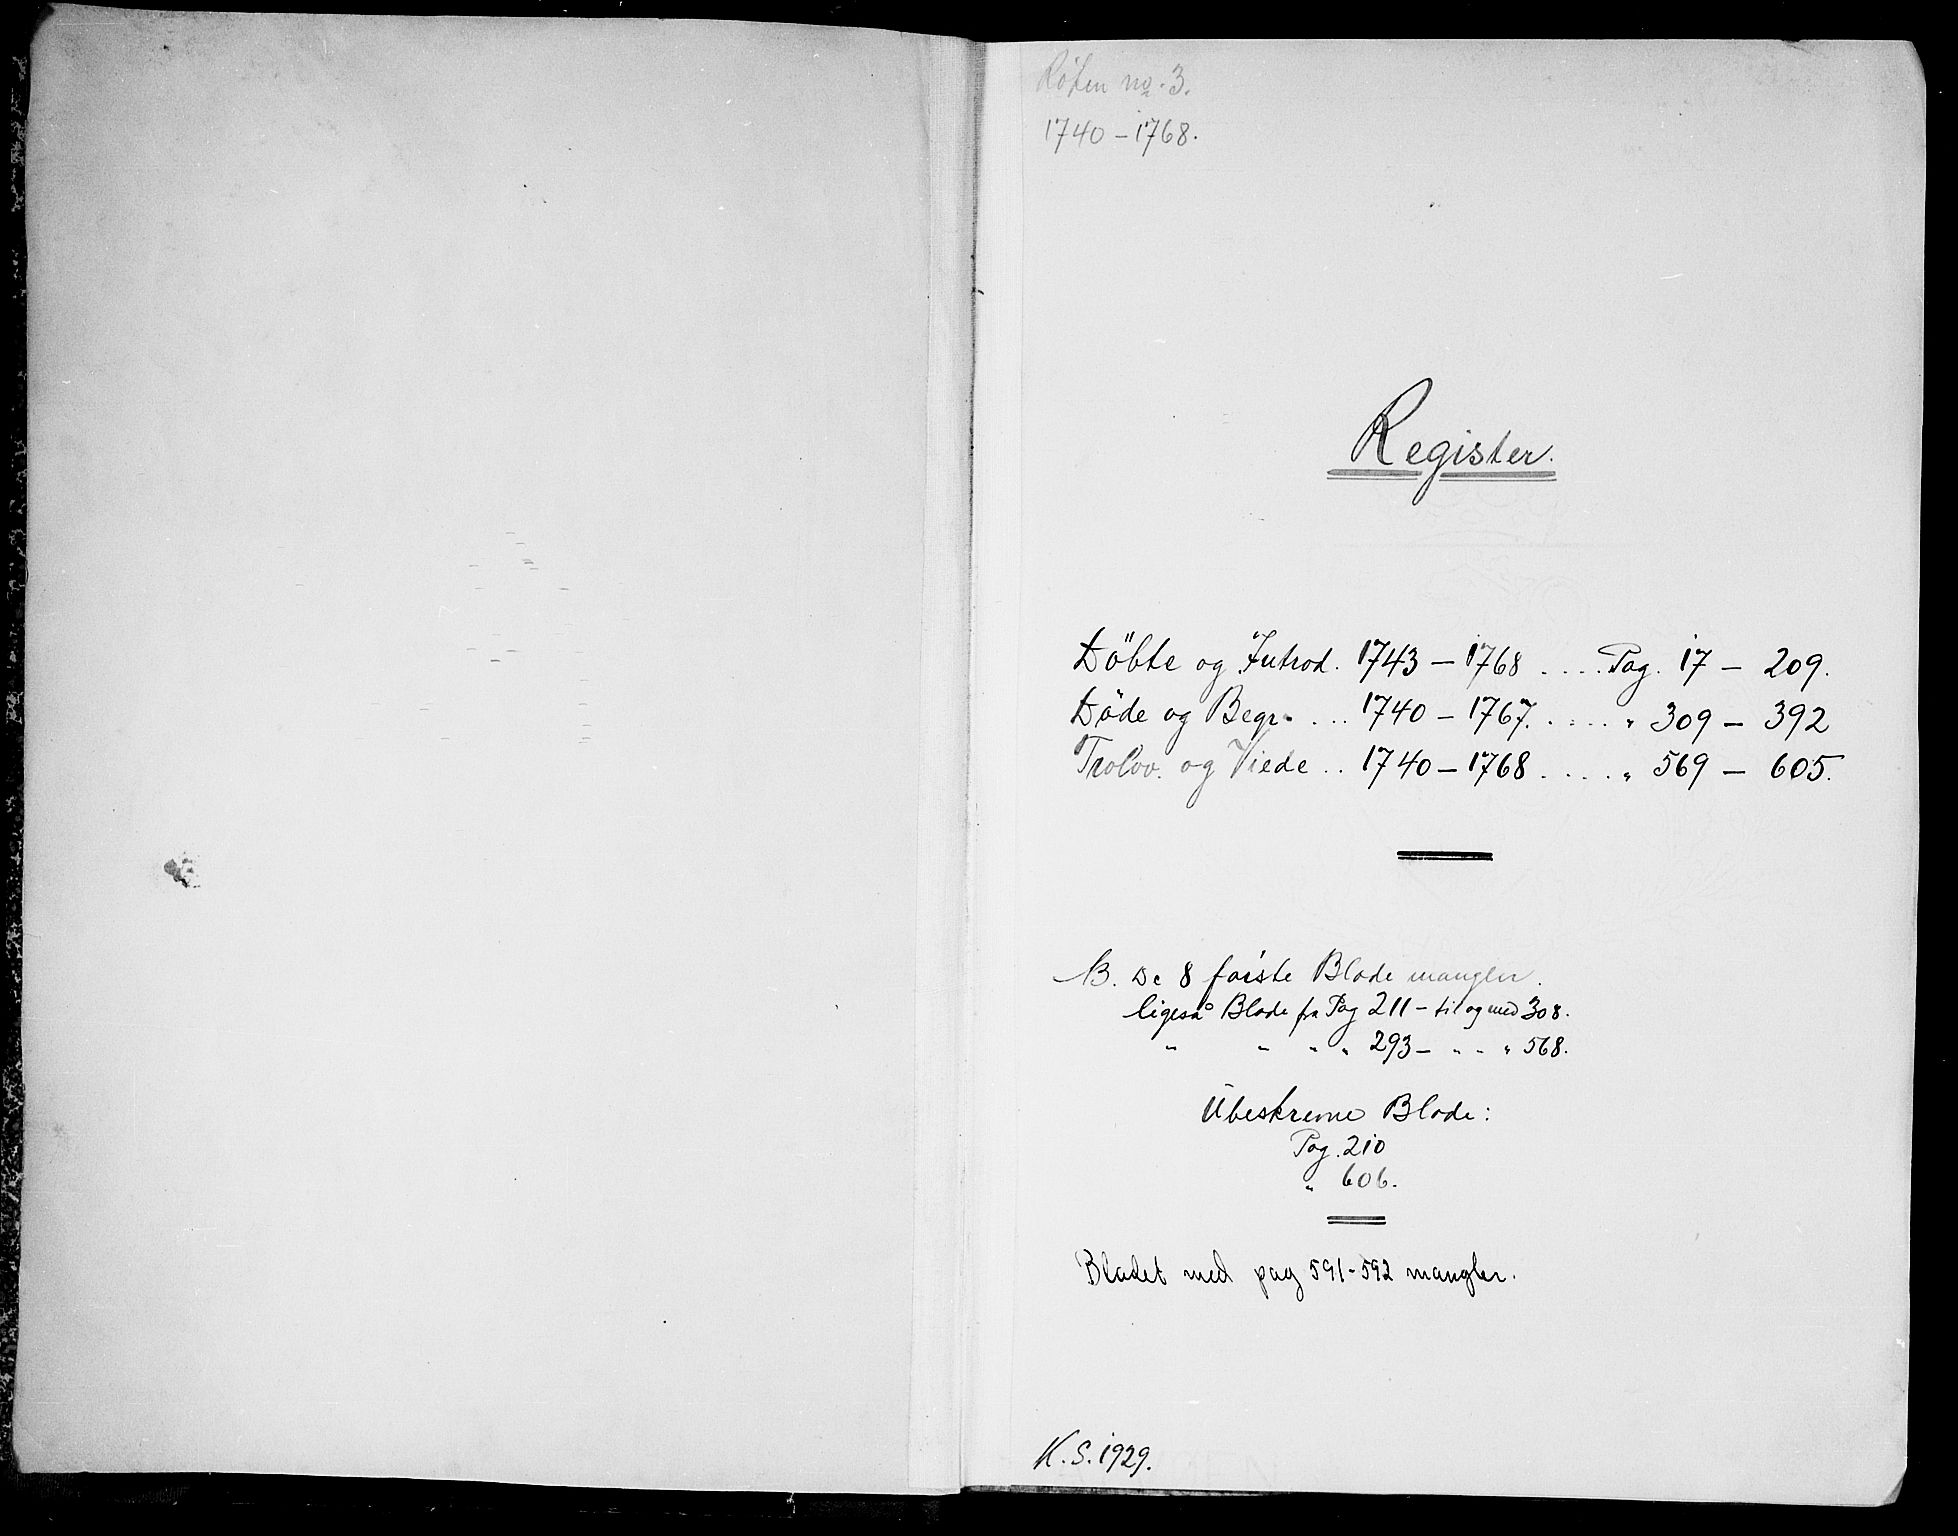 Röken no. 3.
1740 – 1768.
Register.
Döbte og Introd. 1743 – 1768 .... Pag. 17 – 209.
Döde og Begr. ... 1740 – 1767. .... " 309 – 392
Trolov. og Viede .. 1740 – 1768 .... " 569 – 605.
NB. De 8 förste Blade mangler.
ligeså Blade fra Pag 211 – til og med 308.
" " " " 293 – " " " 568.
Ubeskrevne Blade:
Pag. 210
" 606.
Bladet med pag 591-592 mangler.
K.S. 1929.